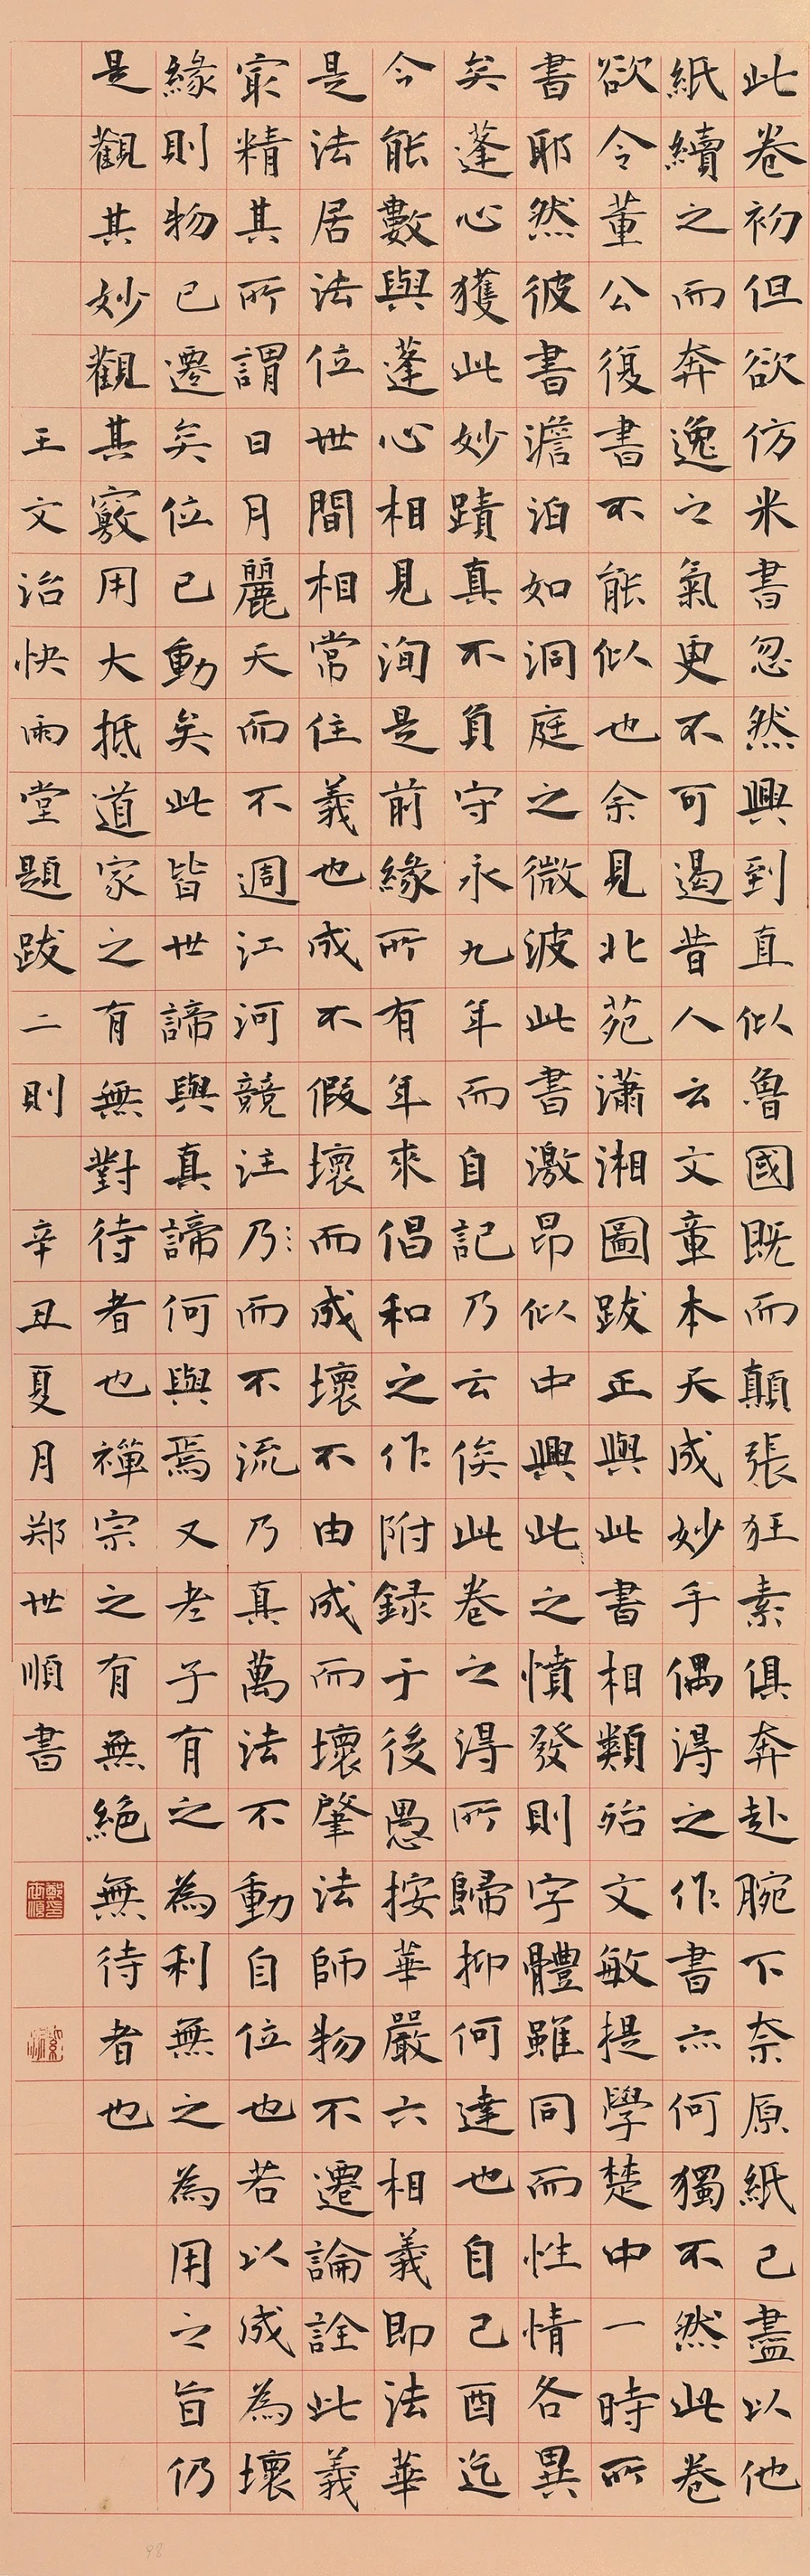 此卷初但欲仿米書忽然興到直似魯國既而顛張狂素俱奔赴腕下奈原紙已盡以他
紙續之而奔逸之氣更不可遏昔人云文章本天成妙手偶得之作書亦何獨不然此卷
欲令董公復書不能似也余見北苑瀟湘圖跋正與此書相類殆文敏提學楚中一時所
書耶然彼書澹泊如洞庭之微波此書激昂似中興此之憤發則字體雖同而性情各異
矣蓬心獲此妙蹟真不負守永九年而自記乃云俟此卷之得所歸抑何達也自己酉迄
今能數與蓬心相見洵是前緣所有年來倡和之作附録于後愚按華嚴六相義即法華
是法居法位世間相常住義也成不假壞而成壞不由成而壞肇法師物不遷論詮此義
最精其所謂日月麗天而不週江河競注乃而不流乃真萬法不動自位也若以成為壞
緣則物已遷矣位已動矣此皆世諦與真諦何與焉又老子有之為利無之為用之旨仍
是觀其妙觀其竅用大抵道家之有無對待者也禪宗之有無絕無待者也
王文治快雨堂題跋二則 辛丑夏月郑世順書